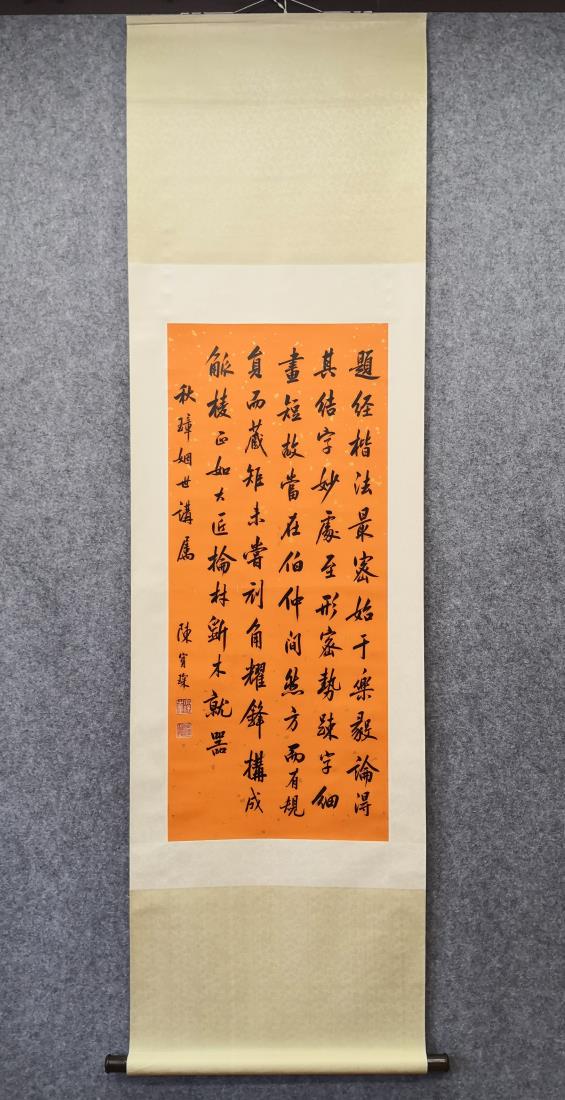 題经楷法最密始于樂毅論得
其结字妙處至形密勢疎字细
畫短故當在伯仲间然方而有規
員而蔵矩未嘗刓角耀鋒構成
觚棱正如大匠掄材斵木就器
秋璋姻世講属
陳寶琛